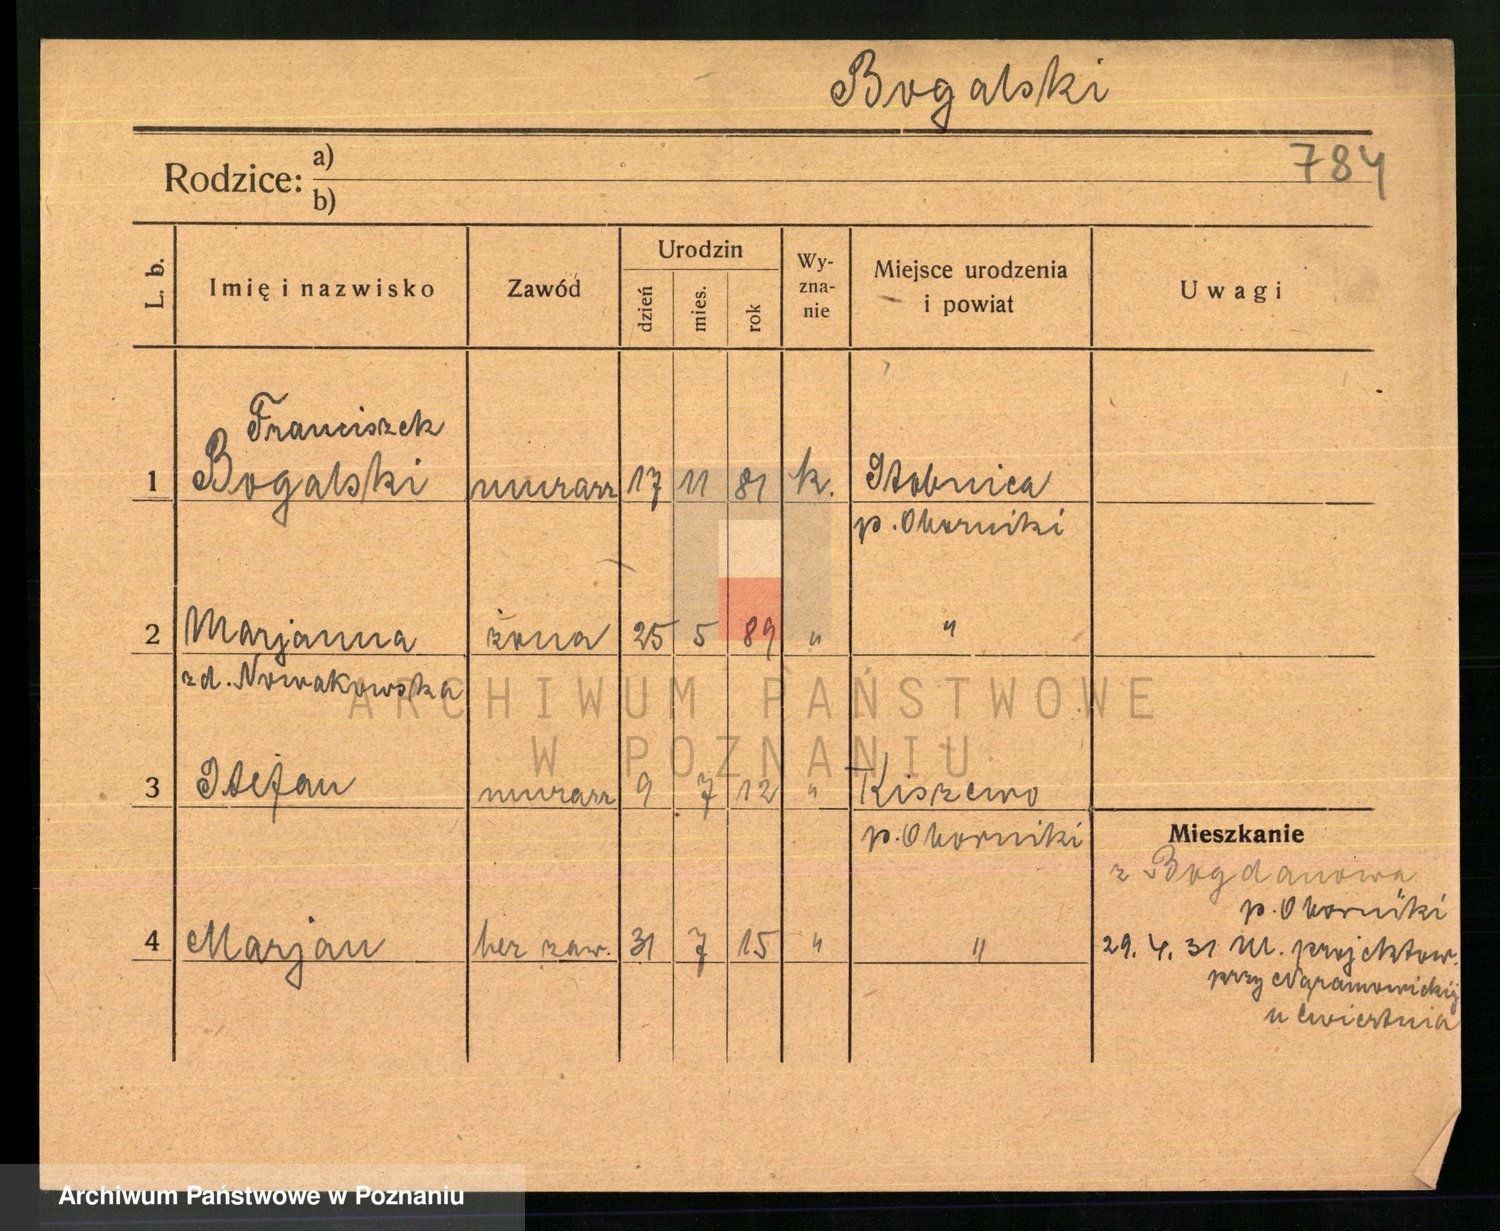 Bogalski
784
Rodzice: a)
b)
L. b.
Imię i nazwisko
Zawód
Urodzin
dzień
mies.
rok
Wy-
zna-
nie
Miejsce urodzenia
i powiat
Uwagi
Franciszek
1 Bogalski murarz 17 11 81 k. Stobnica
p. Oborniki
2 Marjanna żona 25 5 89 " "
zd. Nowakowska
3 Stefan murarz 9 7 12 " Kiszewo
p. Oborniki
Mieszkanie
z Bogdanowa
p. Oborniki
4 Marjan bez zaw. 31 7 15 " "
29. 4. 31 Ul. projektow.
przy Naramowickiej
u Ćwiertnia
ARCHIWUM PAŃSTWOWE
W POZNANIU
Archiwum Państwowe w Poznaniu